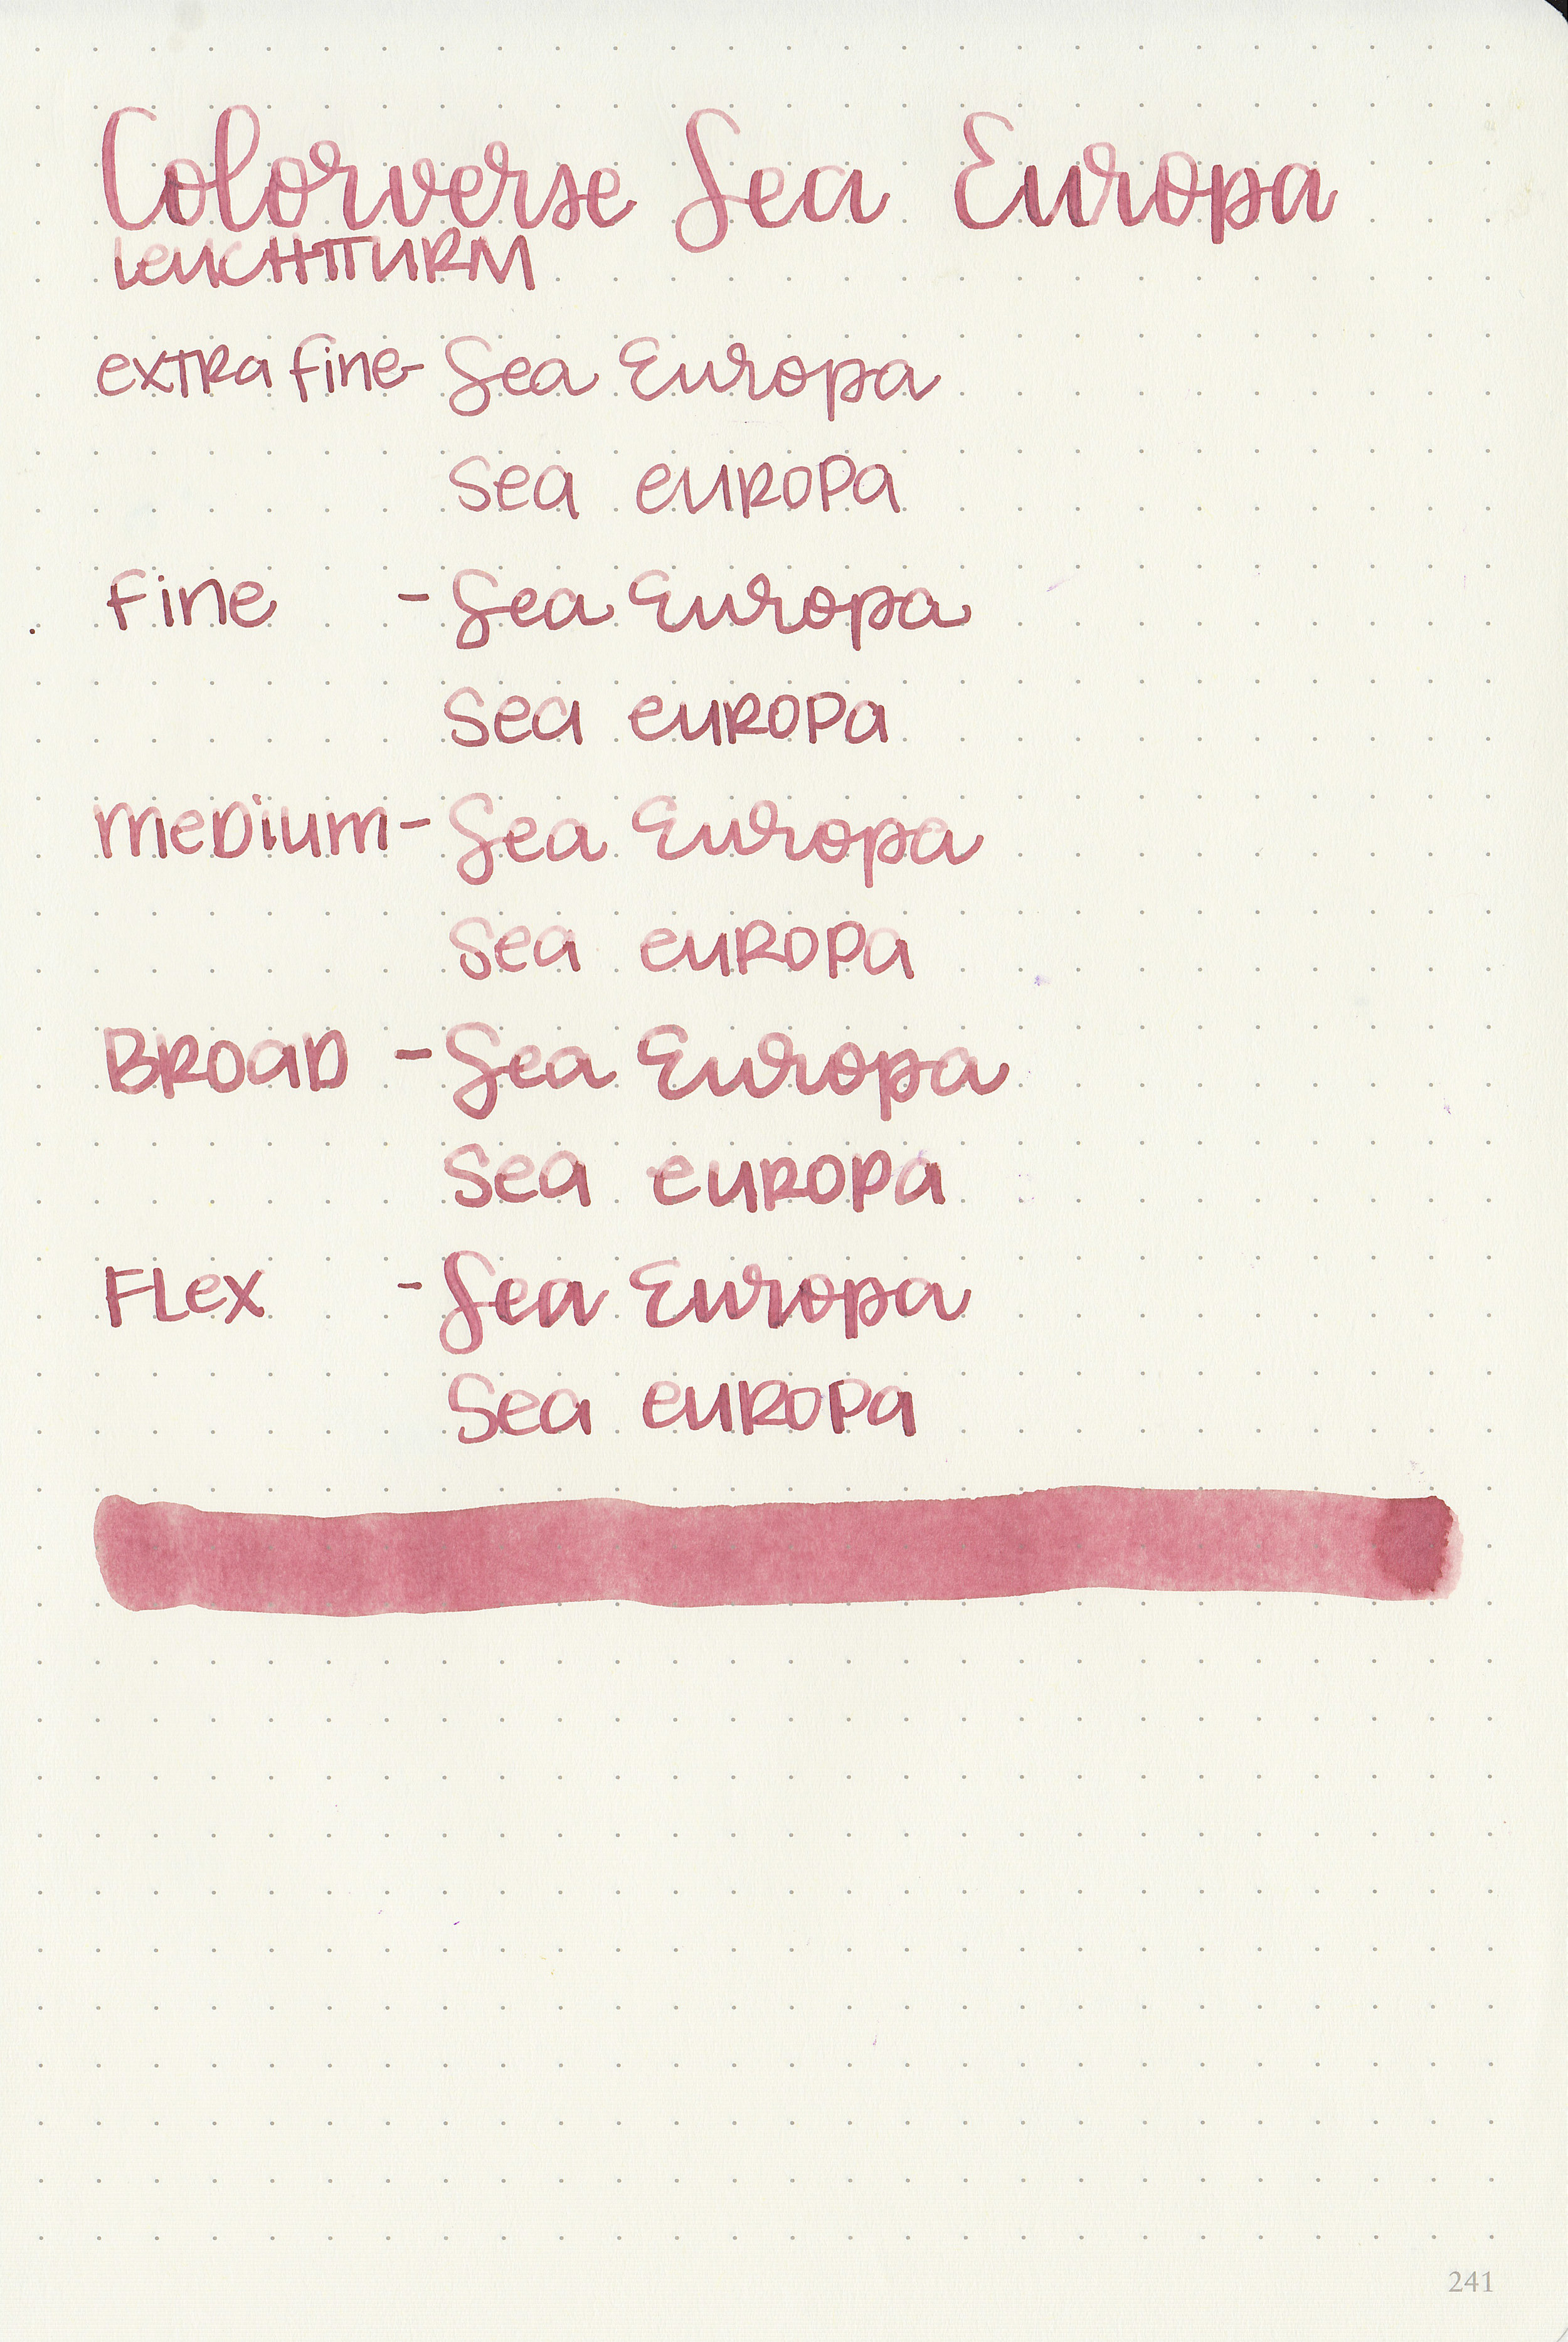 Colorverse Sea Europa
LEUCHTTURM
extra fine - Sea Europa
Sea Europa
Fine - Sea Europa
Sea Europa
Medium - Sea Europa
Sea Europa
Broad - Sea Europa
Sea Europa
Flex - Sea Europa
Sea Europa
241